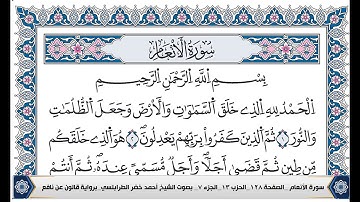 سُورَةُ الأَنْعَامِ
بِسْمِ اللَّهِ الرَّحْمَٰنِ الرَّحِيمِ
الْحَمْدُ لِلهِ الذِے خَلَقَ السَّمَٰوَٰتِ وَالْأَرْضَ وَجَعَلَ الظُّلُمَٰتِ
وَالنُّورَ ۝١ ثُمَّ الذِينَ كَفَرُواْ بِرَبِّهِمْ يَعْدِلُونَ ۝٢ هُوَ الذِے خَلَقَكُم
مِّن طِينٖ ثُمَّ قَضَىٰٓ أَجَلاٗ وَأَجَلٞ مُّسَمًّى عِندَهُۥ ثُمَّ أَنتُمْ
سورة الأنعام _الصفحة ١٢٨_الحزب ١٣_الجزء ٧_ بصوت الشيخ أحمد خضر الطرابلسي. برواية قالون عن نافع